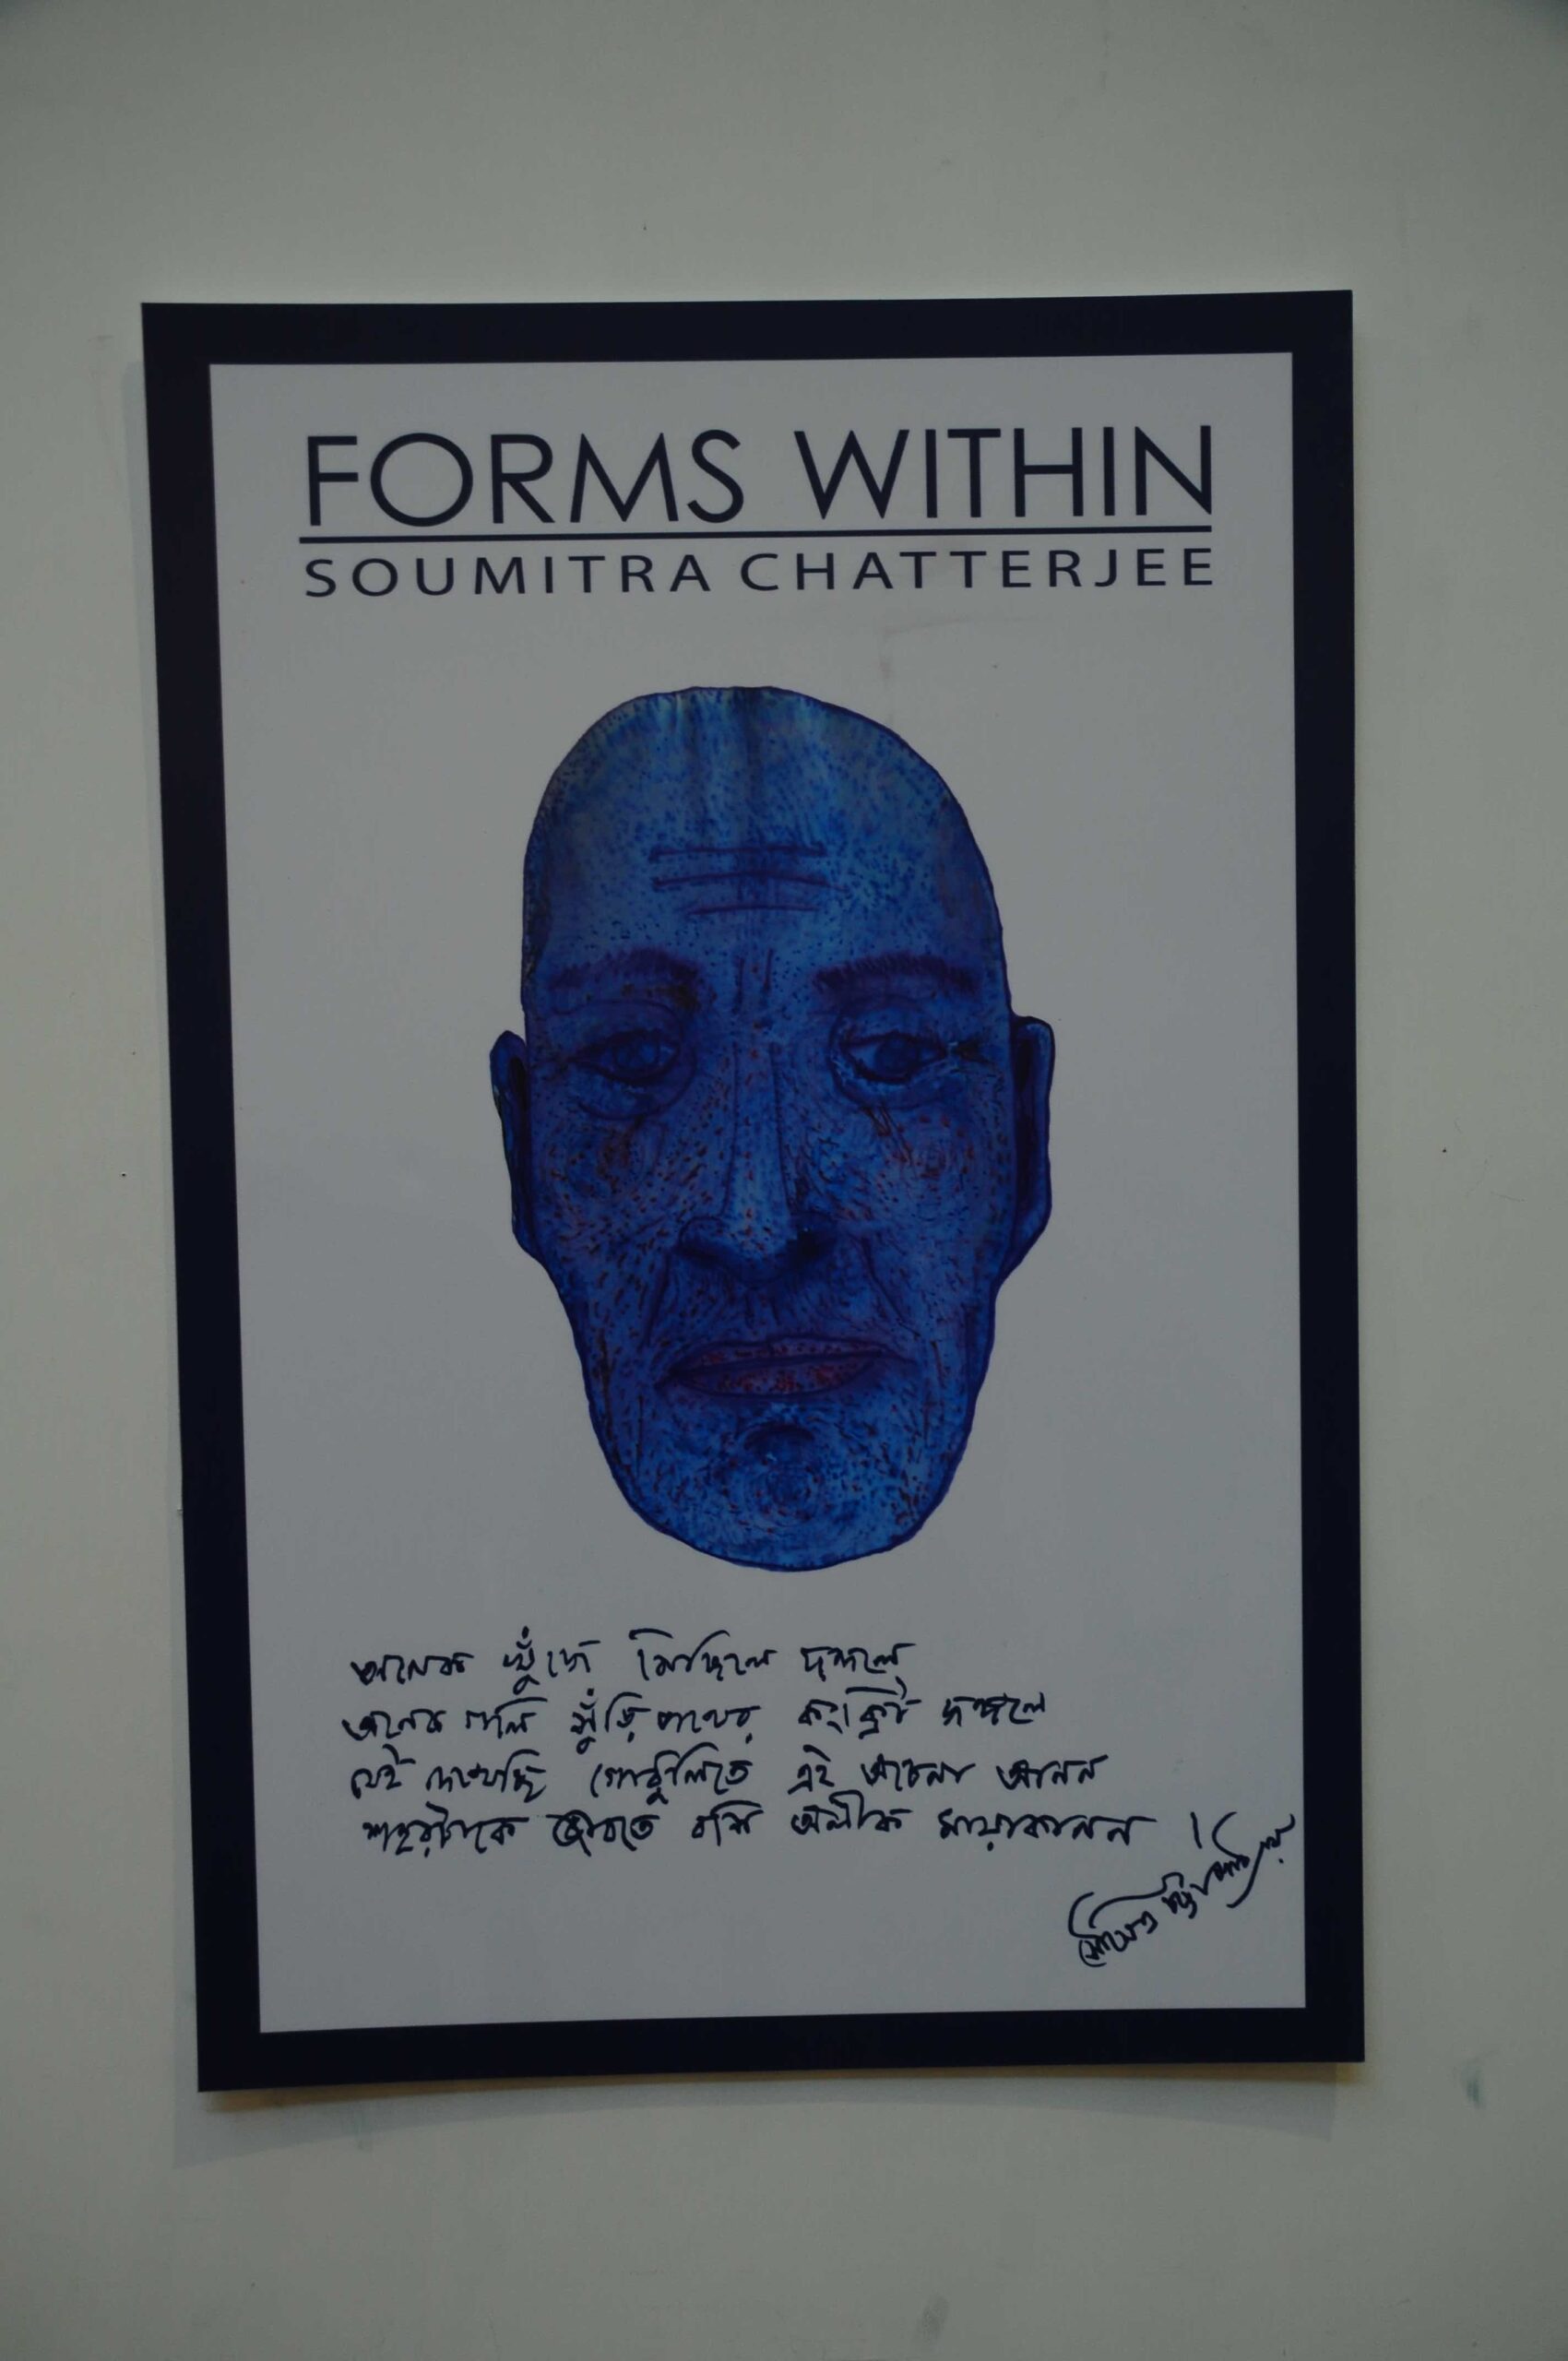 FORMS WITHIN
SOUMITRA CHATTERJEE
অনেক খুঁজে মিছিলে দঙ্গলে
অনেক গলি খুঁজি পথের কংক্রিট জঙ্গলে
যেই দেখেছি গোধূলিতে এই অচেনা আনন
শহরটাকে ভাবতে বসি অলীক মায়াকানন।
সৌমিত্র চট্টোপাধ্যায়